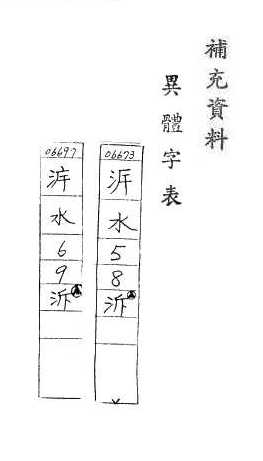 補充資料
異體字表
06673
水
5
8
泝
06697
水
6
9
泝